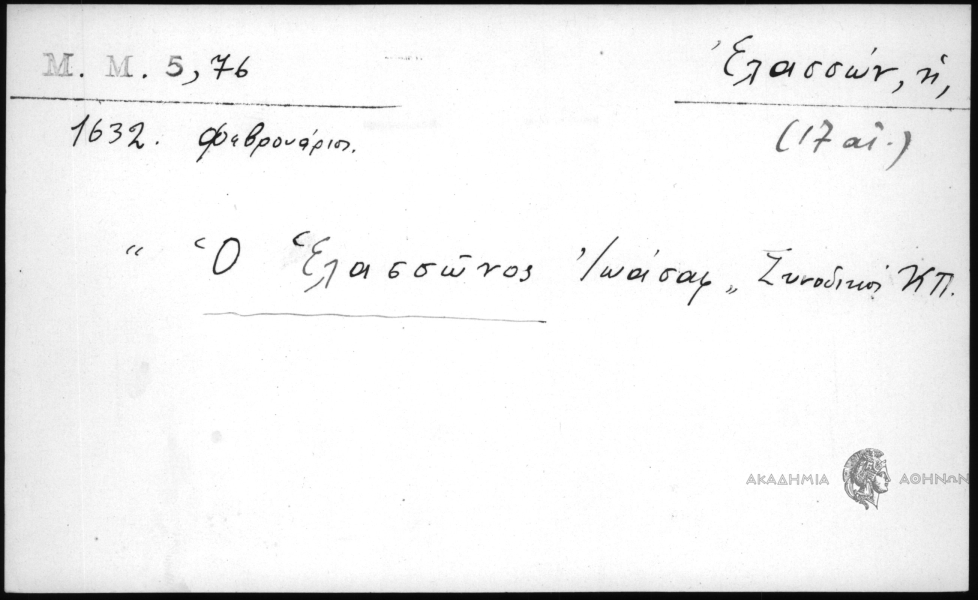 M. M. 5, 76
Ἐλασσών, ἡ,
1632. Φεβρουάριος.
(17 αἰ.)
“ Ὁ Ἐλασσῶνος Ἰωάσαφ „ Συνοδικοί ΚΠ.
ΑΚΑΔΗΜΙΑ ΑΘΗΝΩΝ